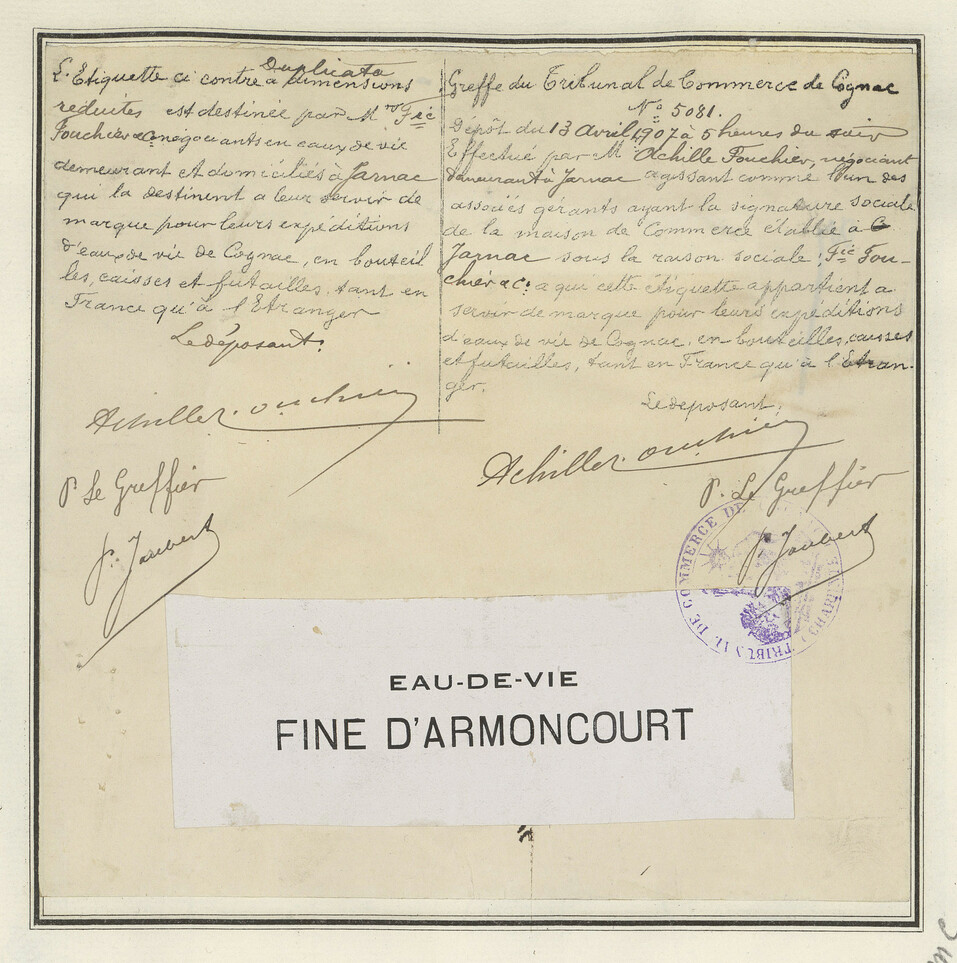 Duplicata
L'Etiquette ci contre à dimensions
réduites est destinée par Mrs Fic
Fouchier & Co négociants en eaux de vie
demeurant et domiciliés à Jarnac
qui la destinent a leur servir de
marque pour leurs expéditions
d'eaux de vie de Cognac, en bouteil
les, caisses et futailles, tant en
France qu'à l'Etranger
Le déposant.
Achille Fouchier
P. Le Greffier
P. Jaubert
Greffe du Tribunal de Commerce de Cognac
No 5081.
Dépôt du 13 Avril 1907 à 5 heures du soir
Effectué par M Achille Fouchier, négociant
demeurant à Jarnac agissant comme l'un des
associés gérants ayant la signature sociale
de la maison de Commerce établie à
Jarnac sous la raison sociale: Fic Fou-
chier & Co a qui cette étiquette appartient a
servir de marque pour leurs expéditions
d'eaux de vie de Cognac, en bouteilles, caisses
et futailles, tant en France qu'à l'Etran-
ger.
Le deposant.
Achille Fouchier
P. Le Greffier
P. Jaubert
TRIBUNAL DE COMMERCE DE
EAU-DE-VIE
FINE D'ARMONCOURT